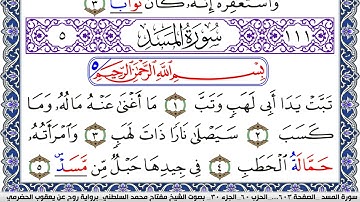 وَٱسْتَغْفِرْهُ إِنَّهُۥ كَانَ تَوَّابًا ٣
١١١ سُورَةُ المَسَدِ ٥
بِسْمِ اللَّهِ الرَّحْمَٰنِ الرَّحِيمِ
تَبَّتْ يَدَا أَبِي لَهَبٍ وَتَبَّ ١ مَا أَغْنَىٰ عَنْهُ مَالُهُۥ وَمَا
كَسَبَ ٢ سَيَصْلَىٰ نَارًا ذَاتَ لَهَبٍ ٣ وَٱمْرَأَتُهُۥ
حَمَّالَةُ ٱلْحَطَبِ ٤ فِي جِيدِهَا حَبْلٌ مِّن مَّسَدٍ ٥
سورة المسد . الصفحة ٦٠٣ ... الحزب ٦٠ . الجزء ٣٠ . بصوت الشيخ مفتاح محمد السلطني . برواية روح عن يعقوب الحضرمي